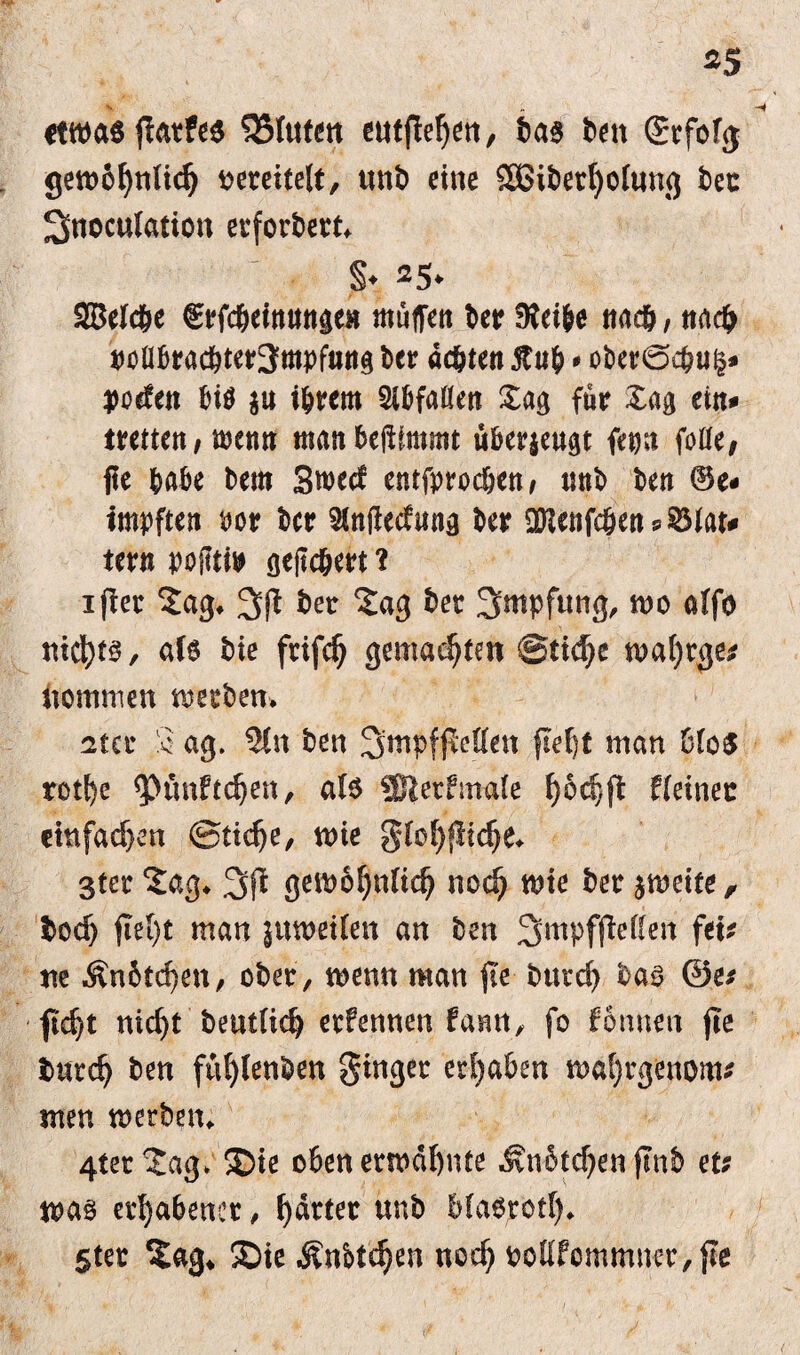 25
etwas starkes Bluten entstehen, das den Erfolg
gewöhnlich vereitelt, und eine Wiederholung der
Inoculation erfordert.
§. 25.
Welche Erscheinungen müssen der Reihe nach, nach
vollbrachter Impfung der ächten Kuh- oder Schutz-
pocken bis zu ihrem Abfallen Tag für Tag ein-
tretten, wenn man bestimmt überzeugt seyn solle,
sie habe dem Zweck entsprochen, und den Ge-
impften vor der Ansteckung der Menschen-Blat-
tern positiv gesichert?
1ster Tag. Ist der Tag der Impfung, wo also
nichts, als die frisch gemachten Stiche wahrge-
nommen werden.
2ter Tag. An den Impfstellen sieht man blos
rothe Pünktchen, als Merkmale höchst kleiner
einfachen Stiche, wie Flohstiche.
3ter Tag. Ist gewöhnlich noch wie der zweite,
doch sieht man zuweilen an den Impfstellen fei-
ne Knötchen, oder, wenn man sie durch das Ge-
sicht nicht deutlich erkennen kann, so können sie
durch den fühlenden Finger erhaben wahrgenom-
men werden.
4ter Tag. Die oben erwähnte Knötchen sind et-
was erhabener, härter und blasroth.
5ter Tag. Die Knötchen noch vollkommner, sie